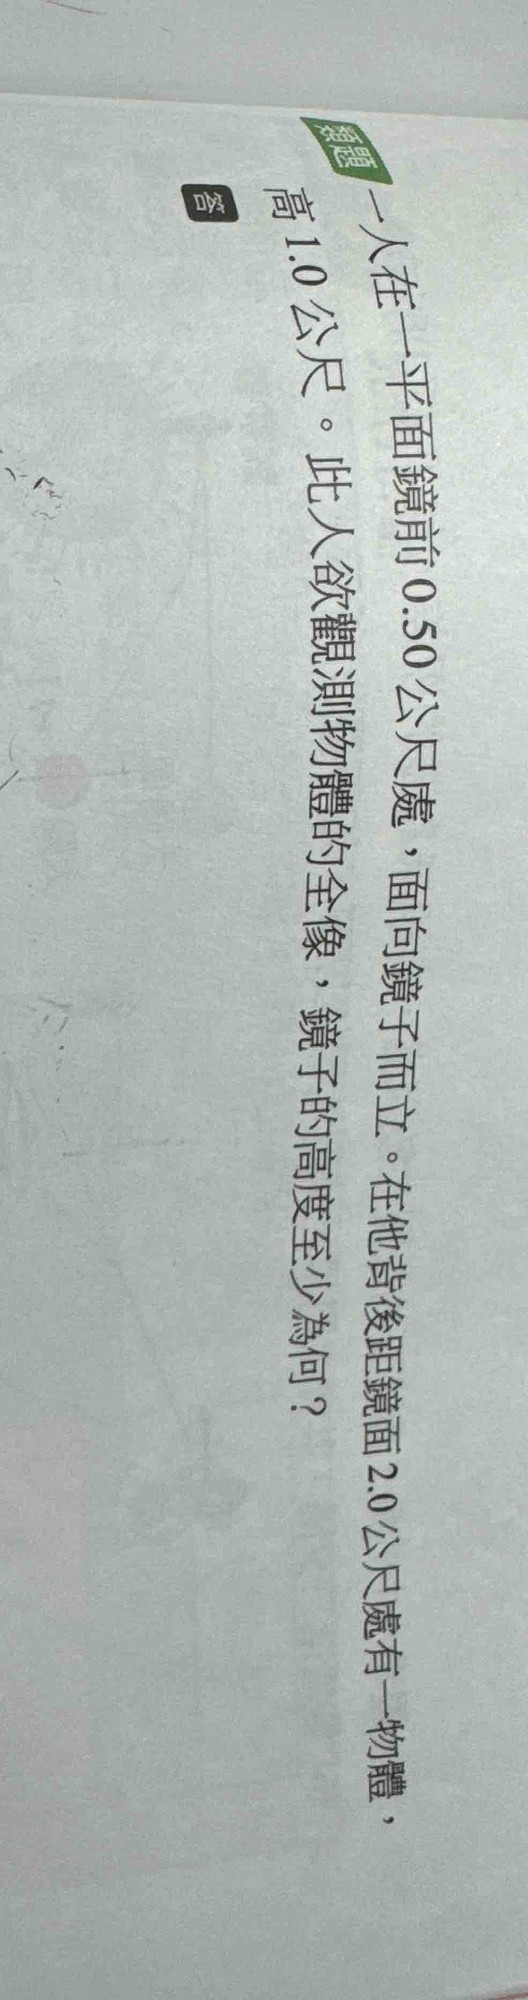 類題 一人在一平面鏡前0.50公尺處，面向鏡子而立。在他背後距鏡面2.0公尺處有一物體，
高1.0公尺。此人欲觀測物體的全像，鏡子的高度至少為何？
答